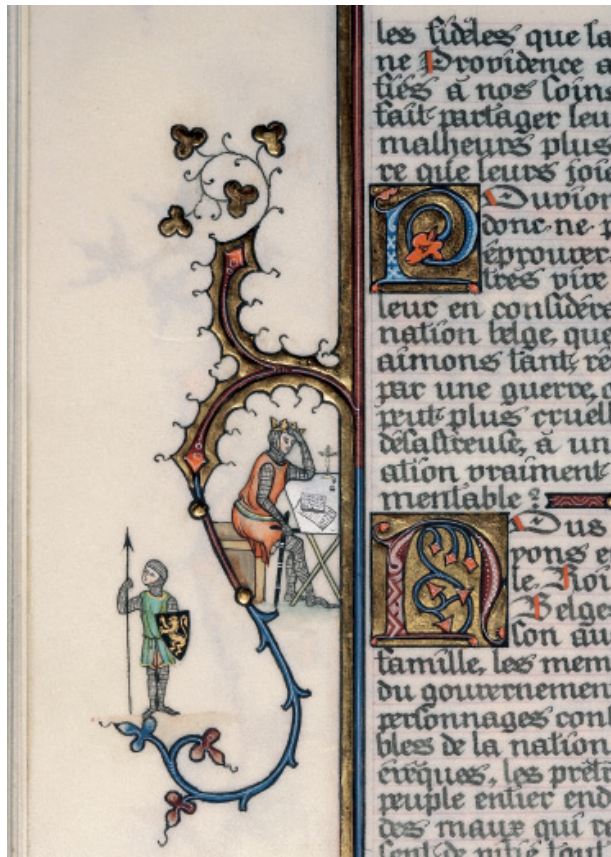 les fidèles que la
ne Providence a
fiés à nos soins
fait partager leu
malheurs plus
re que leurs joi
Ouvion
donc ne p
éprouver
très vive
leur en considér
nation belge, que
aimons tant, ré
par une guerre, 
peut plus cruel
désastreuse, à un
ation vraiment
mentable ?
N Ous
yons e
le Roi
Belge
son au
famille, les mem
du gouvernemen
personnages con
bles de la nation
évêques, les prêt
peuple entier end
des maux qui d
sent de pitié tout